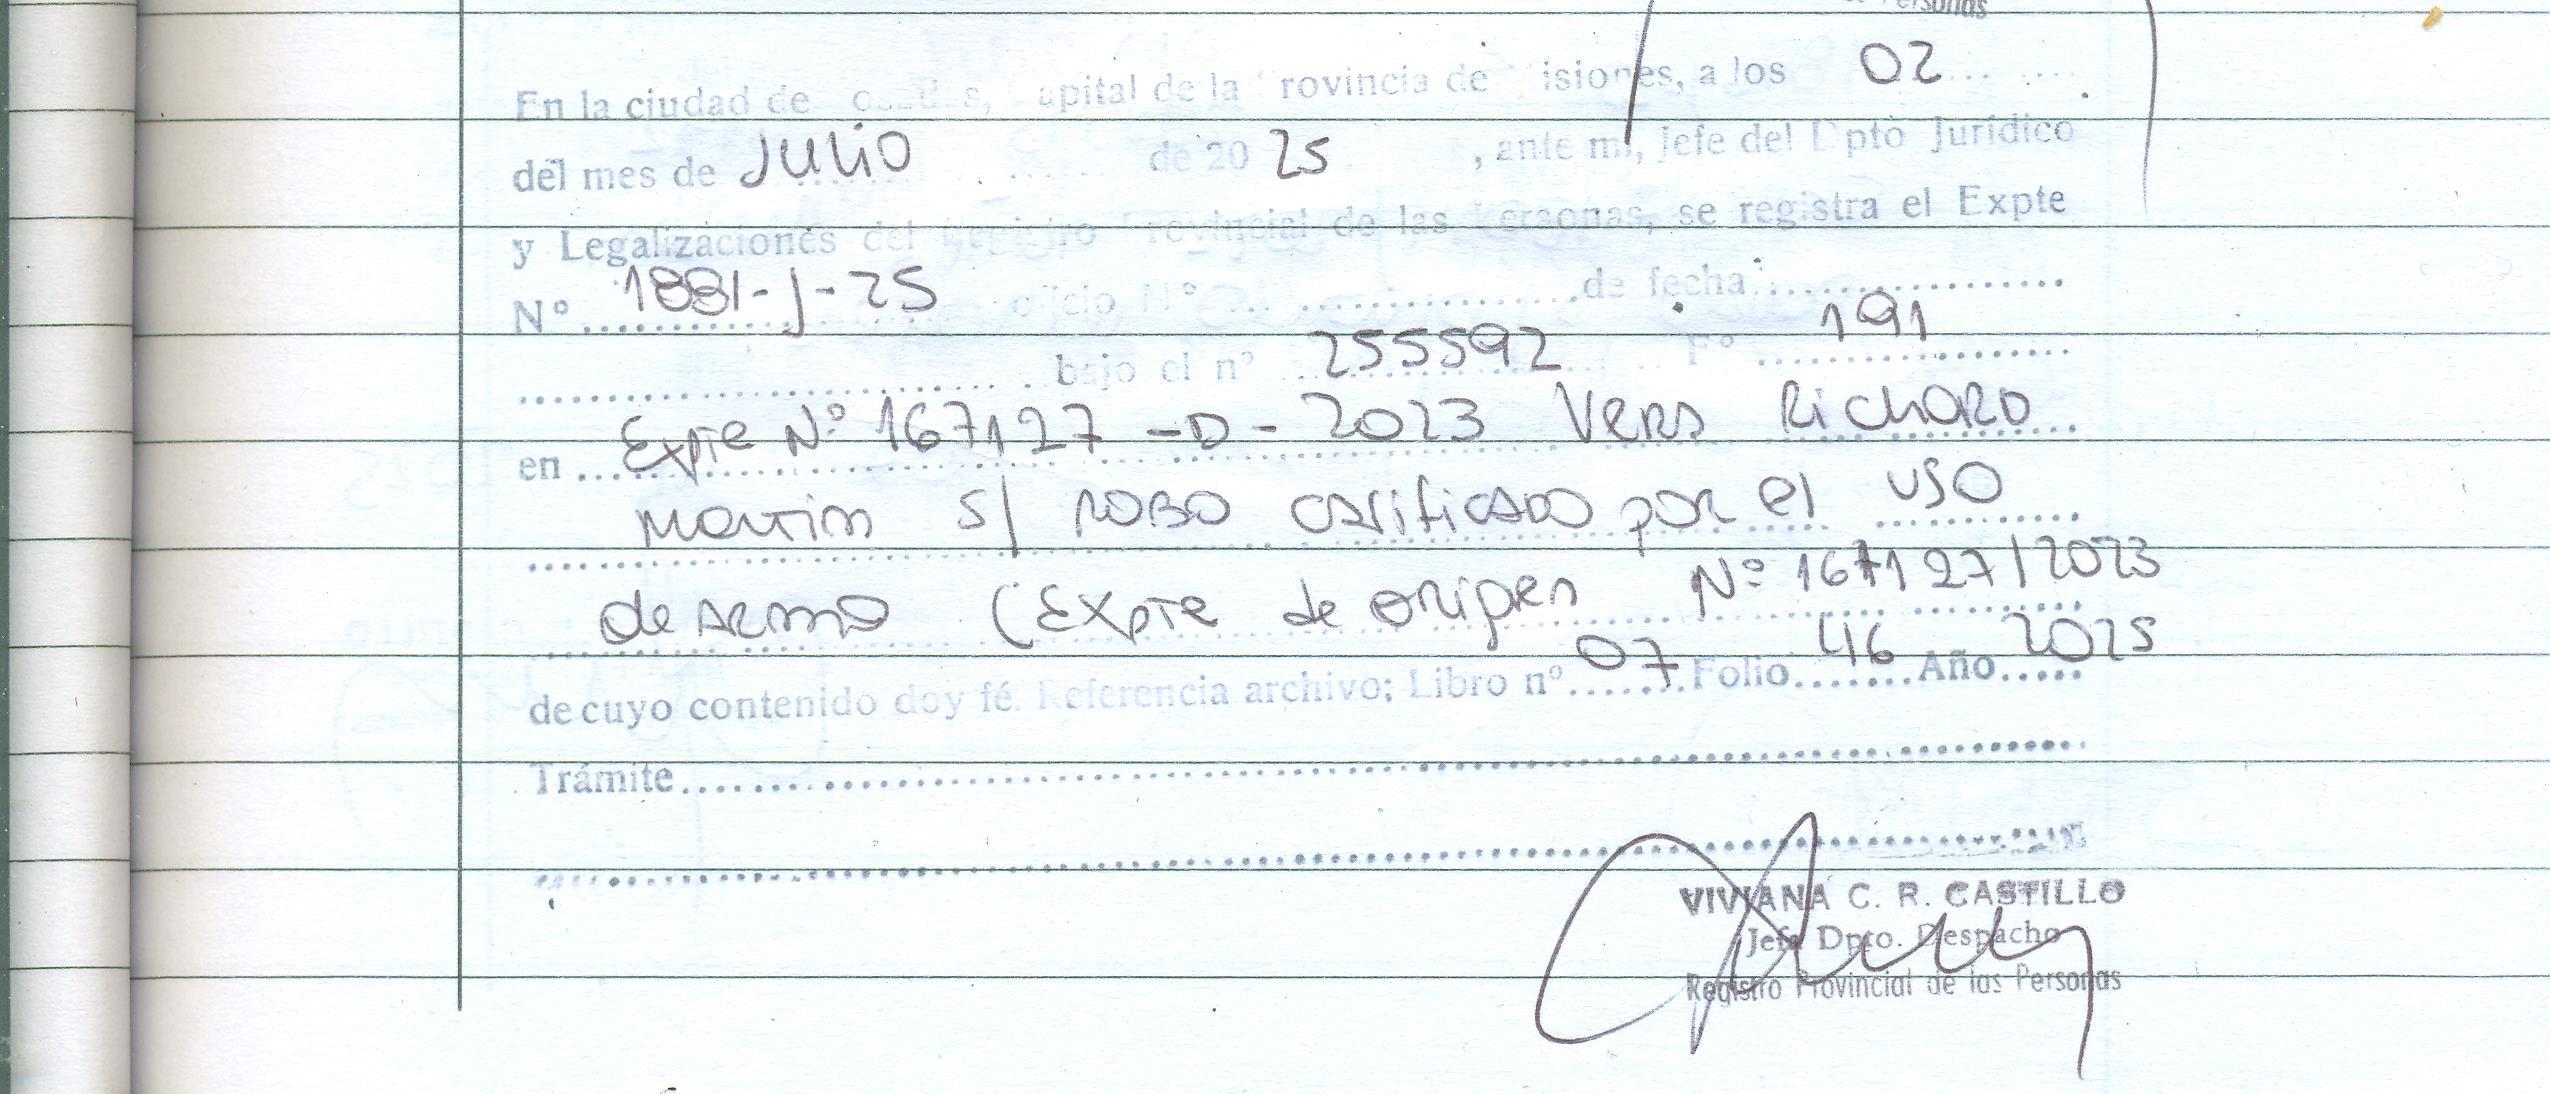 de Personas
En la ciudad de Posadas, Capital de la Provincia de Misiones, a los 02
del mes de Julio de 20 25, ante mi, Jefe del Dpto Jurídico
y Legalizaciones del Registro Provincial de las Personas, se registra el Expte
Nº 1881-J-25 oficio Nº de fecha
bajo el nº 255592 Fº 191
en Expte Nº 167127-D-2023 Vera Richard
Martin s/ robo calificado por el uso
de arma (Expte de origen Nº 167127/2023
de cuyo contenido doy fé. Referencia archivo: Libro nº 07 Folio 46 Año 2025
Trámite
VIVIANA C. R. CASTILLO
Jefa Dpto. Despacho
Registro Provincial de las Personas